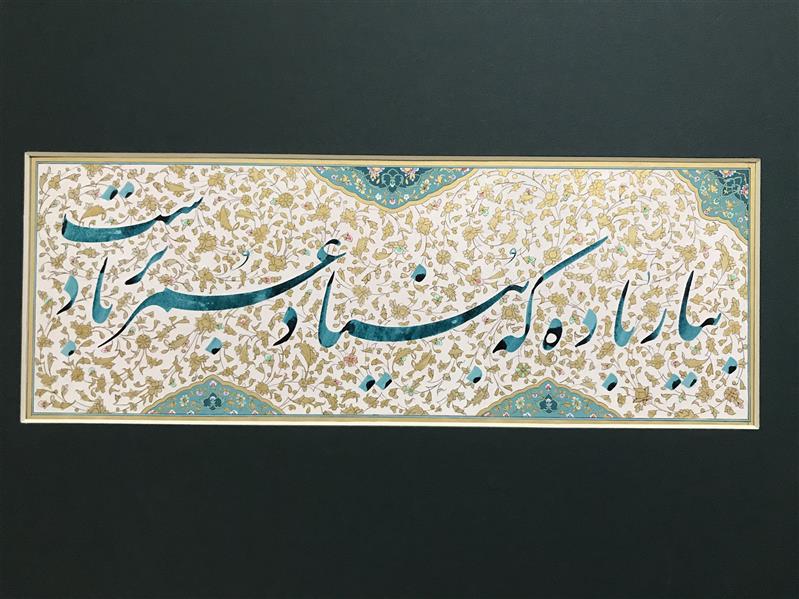 بیار باده که بنیاد عمر بر بادست